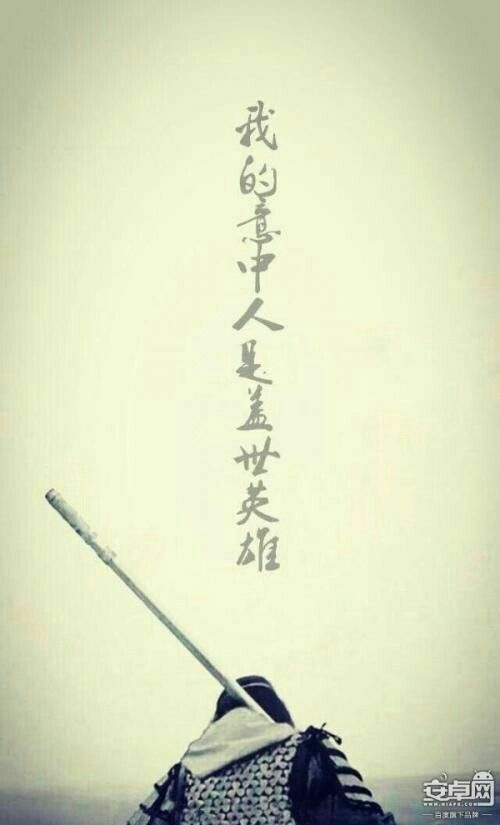 我的意中人是盖世英雄
安卓网
WWW.HIAPK.COM
百度旗下品牌